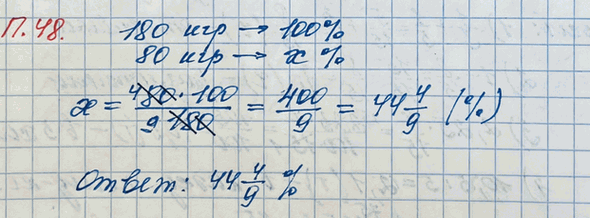 П.48. 180 игр → 100%
80 игр → x %
x = 80·100/180 = 400/9 = 44 4/9 (%)
Ответ: 44 4/9 %